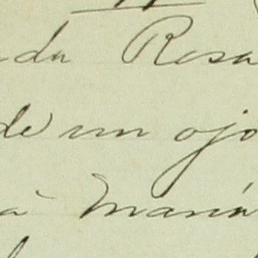 da Rosa
de un ojo
à María